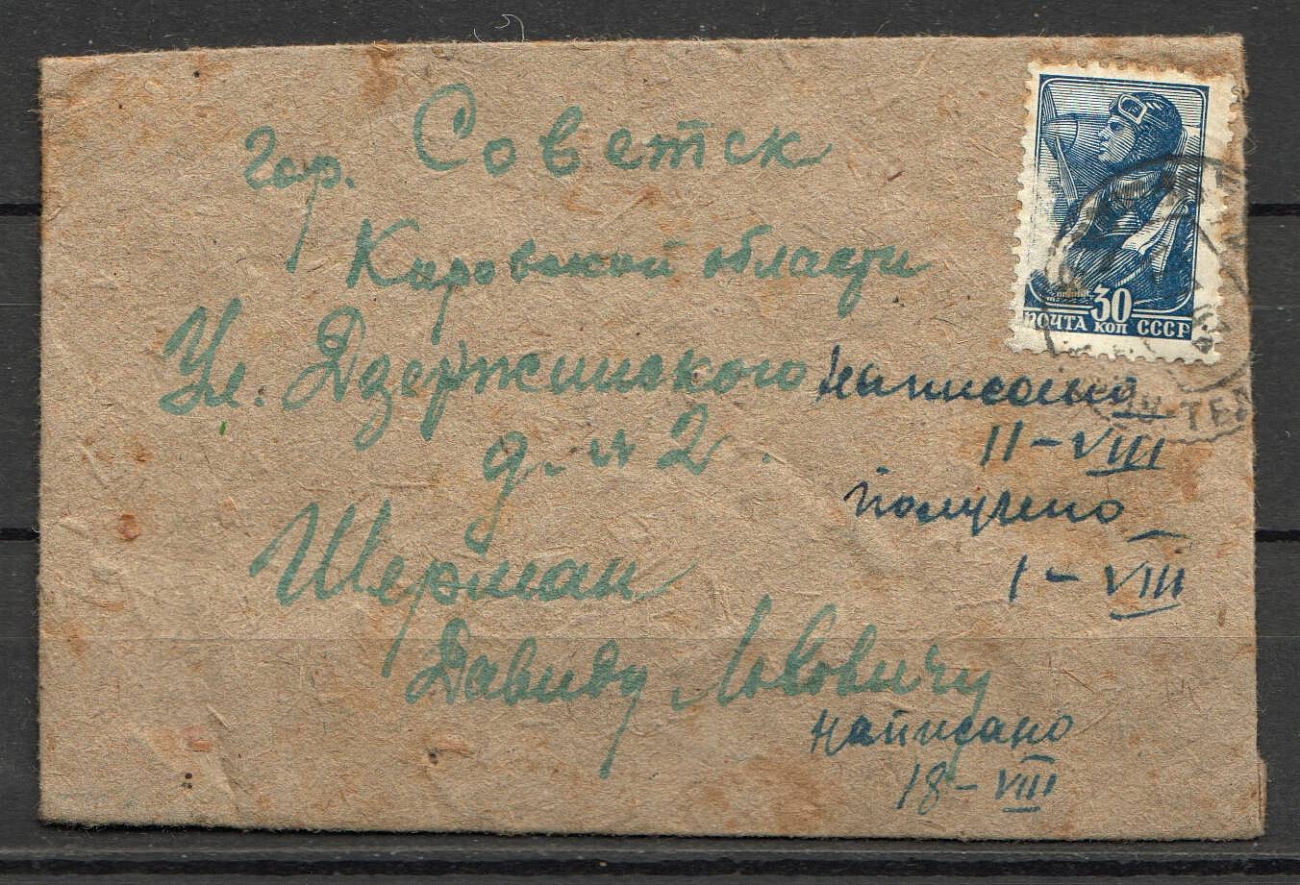 Гор. Советск
Кировской области
Ул. Дзержинского
д. № 2.
Шерман
Давиду Львовичу
30
ПОЧТА КОП СССР
написано
11-VIII
получено
1-VIII
написано
18-VIII